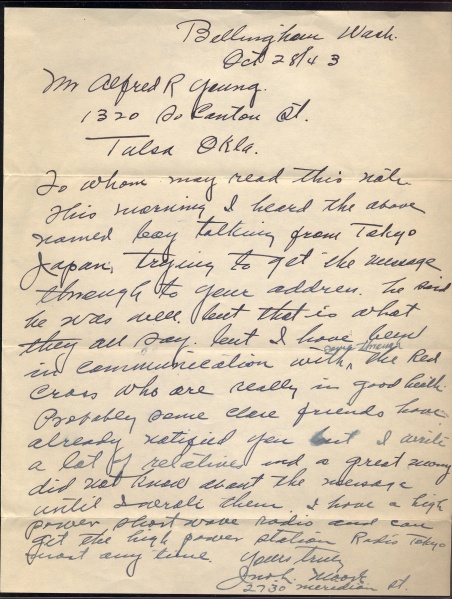 Bellingham Wash.
Oct 28/43
Mr Alfred R Young.
1320 So Canton St.
Tulsa Okla.
To whom may read this note.
This morning I heard the above
named boy talking from Tokyo
Japan, trying to get the message
through to your address. he said
he was well. but that is what
they all say. but I have been
in communication with, the Red
Cross who are really in good health
Probably some close friends have
already notified you but I write
a lot of relatives and a great many
did not know about the message
until I wrote them. I have a high
power short wave radio and can
get the high power station Radio Tokyo
most any time. Yours truly
Jno. L. Moore
2730 Meridian St.